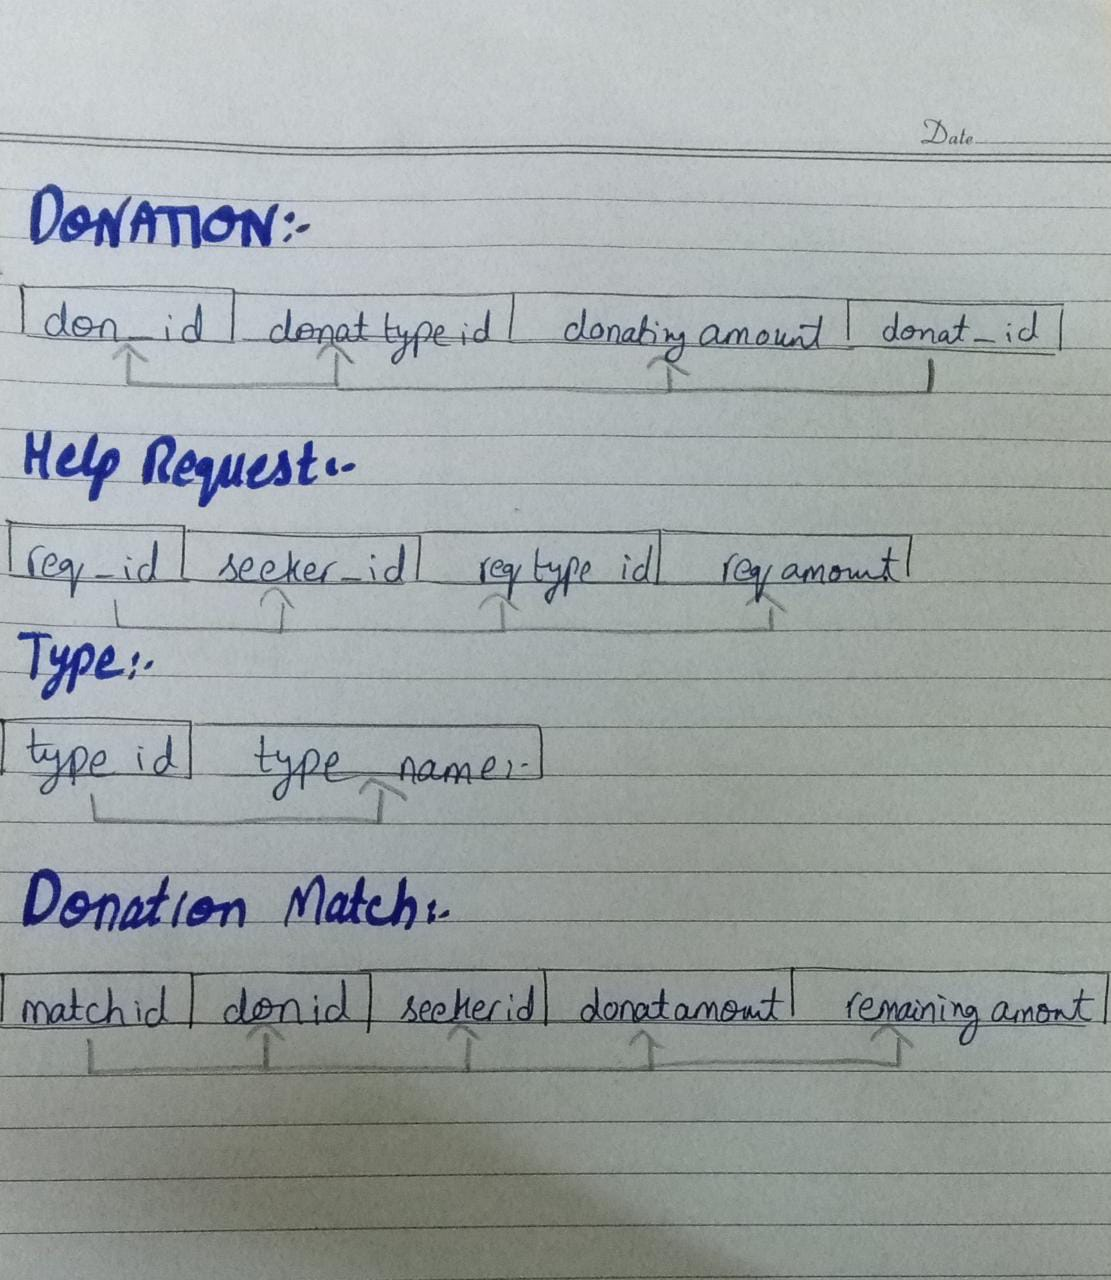 Date
DONATION:-
don_id donat type id donating amount donat_id
Help Request:-
req_id seeker_id req type id req amount
Type:-
type id type name:-
Donation Match:-
match id don id seeker id donat amount remaining amont